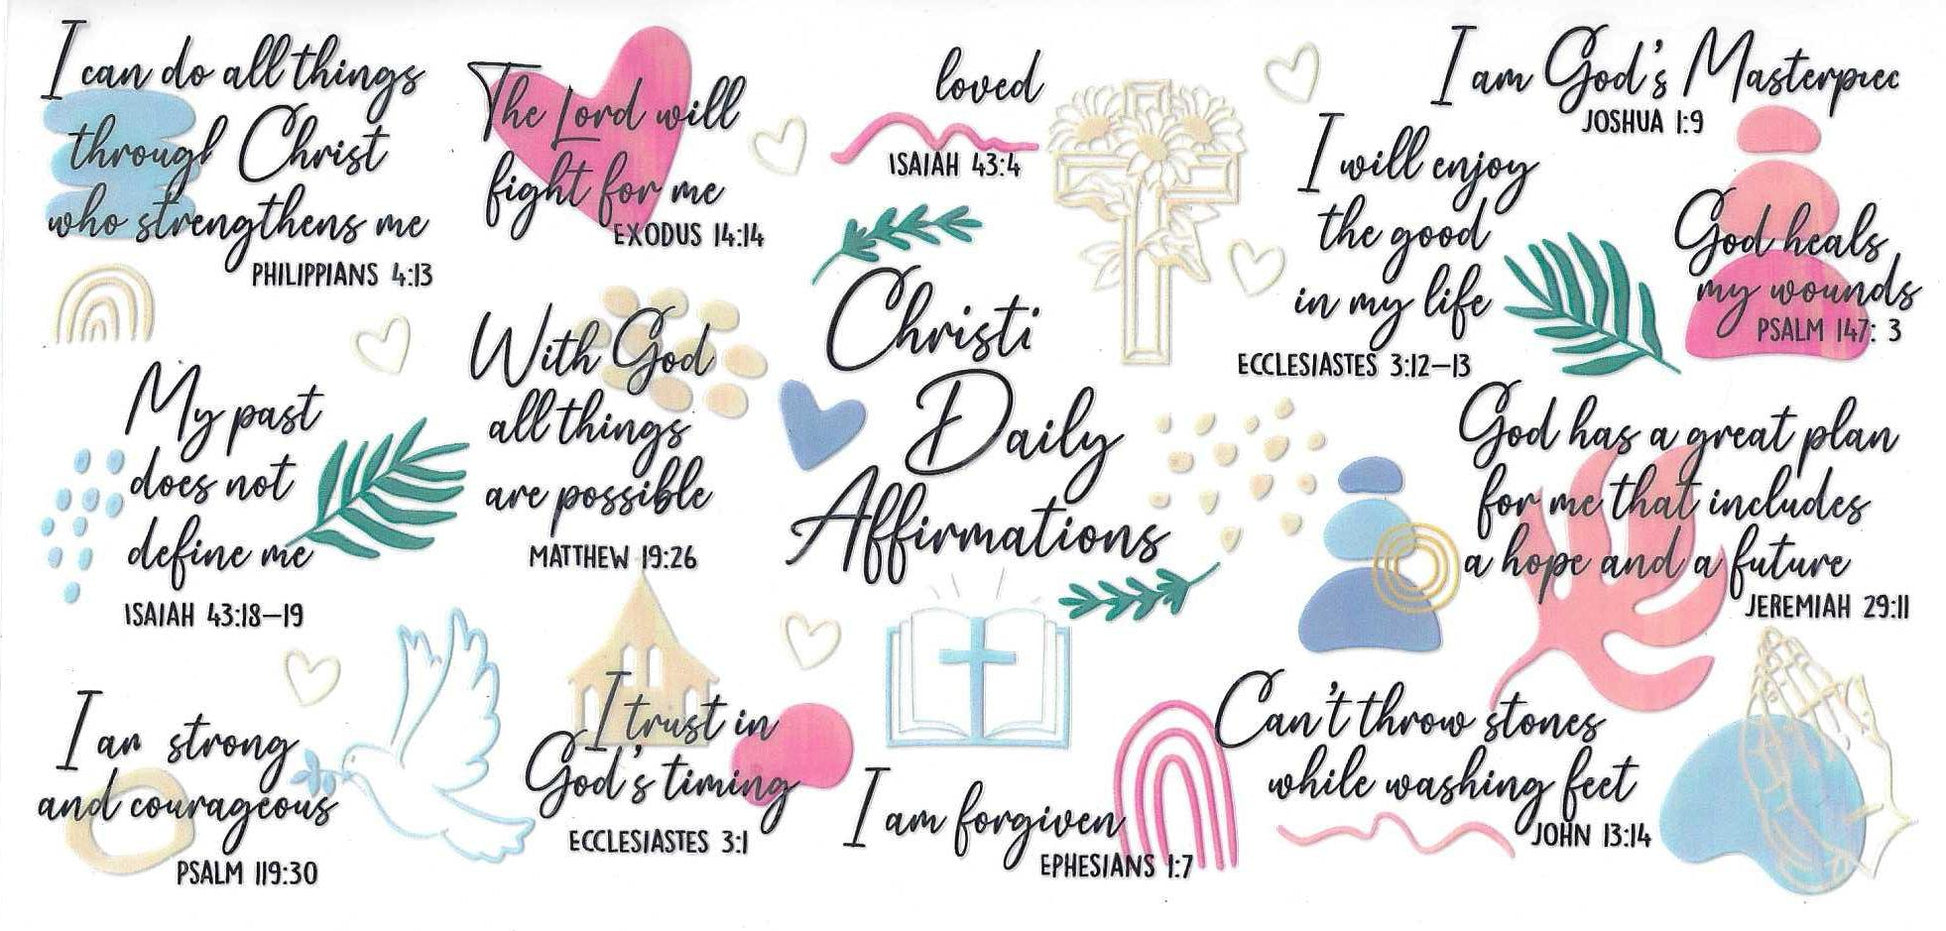 I can do all things
through Christ
who strengthens me
PHILIPPIANS 4:13
The Lord will
fight for me
EXODUS 14:14
loved
ISAIAH 43:4
I am God's Masterpiec
JOSHUA 1:9
I will enjoy
the good
in my life
ECCLESIASTES 3:12–13
God heals
my wounds
PSALM 147: 3
My past
does not
define me
ISAIAH 43:18–19
With God
all things
are possible
MATTHEW 19:26
Christi
Daily
Affirmations
God has a great plan
for me that includes
a hope and a future
JEREMIAH 29:11
I am strong
and courageous
PSALM 119:30
I trust in
God's timing
ECCLESIASTES 3:1
I am forgiven
EPHESIANS 1:7
Can't throw stones
while washing feet
JOHN 13:14